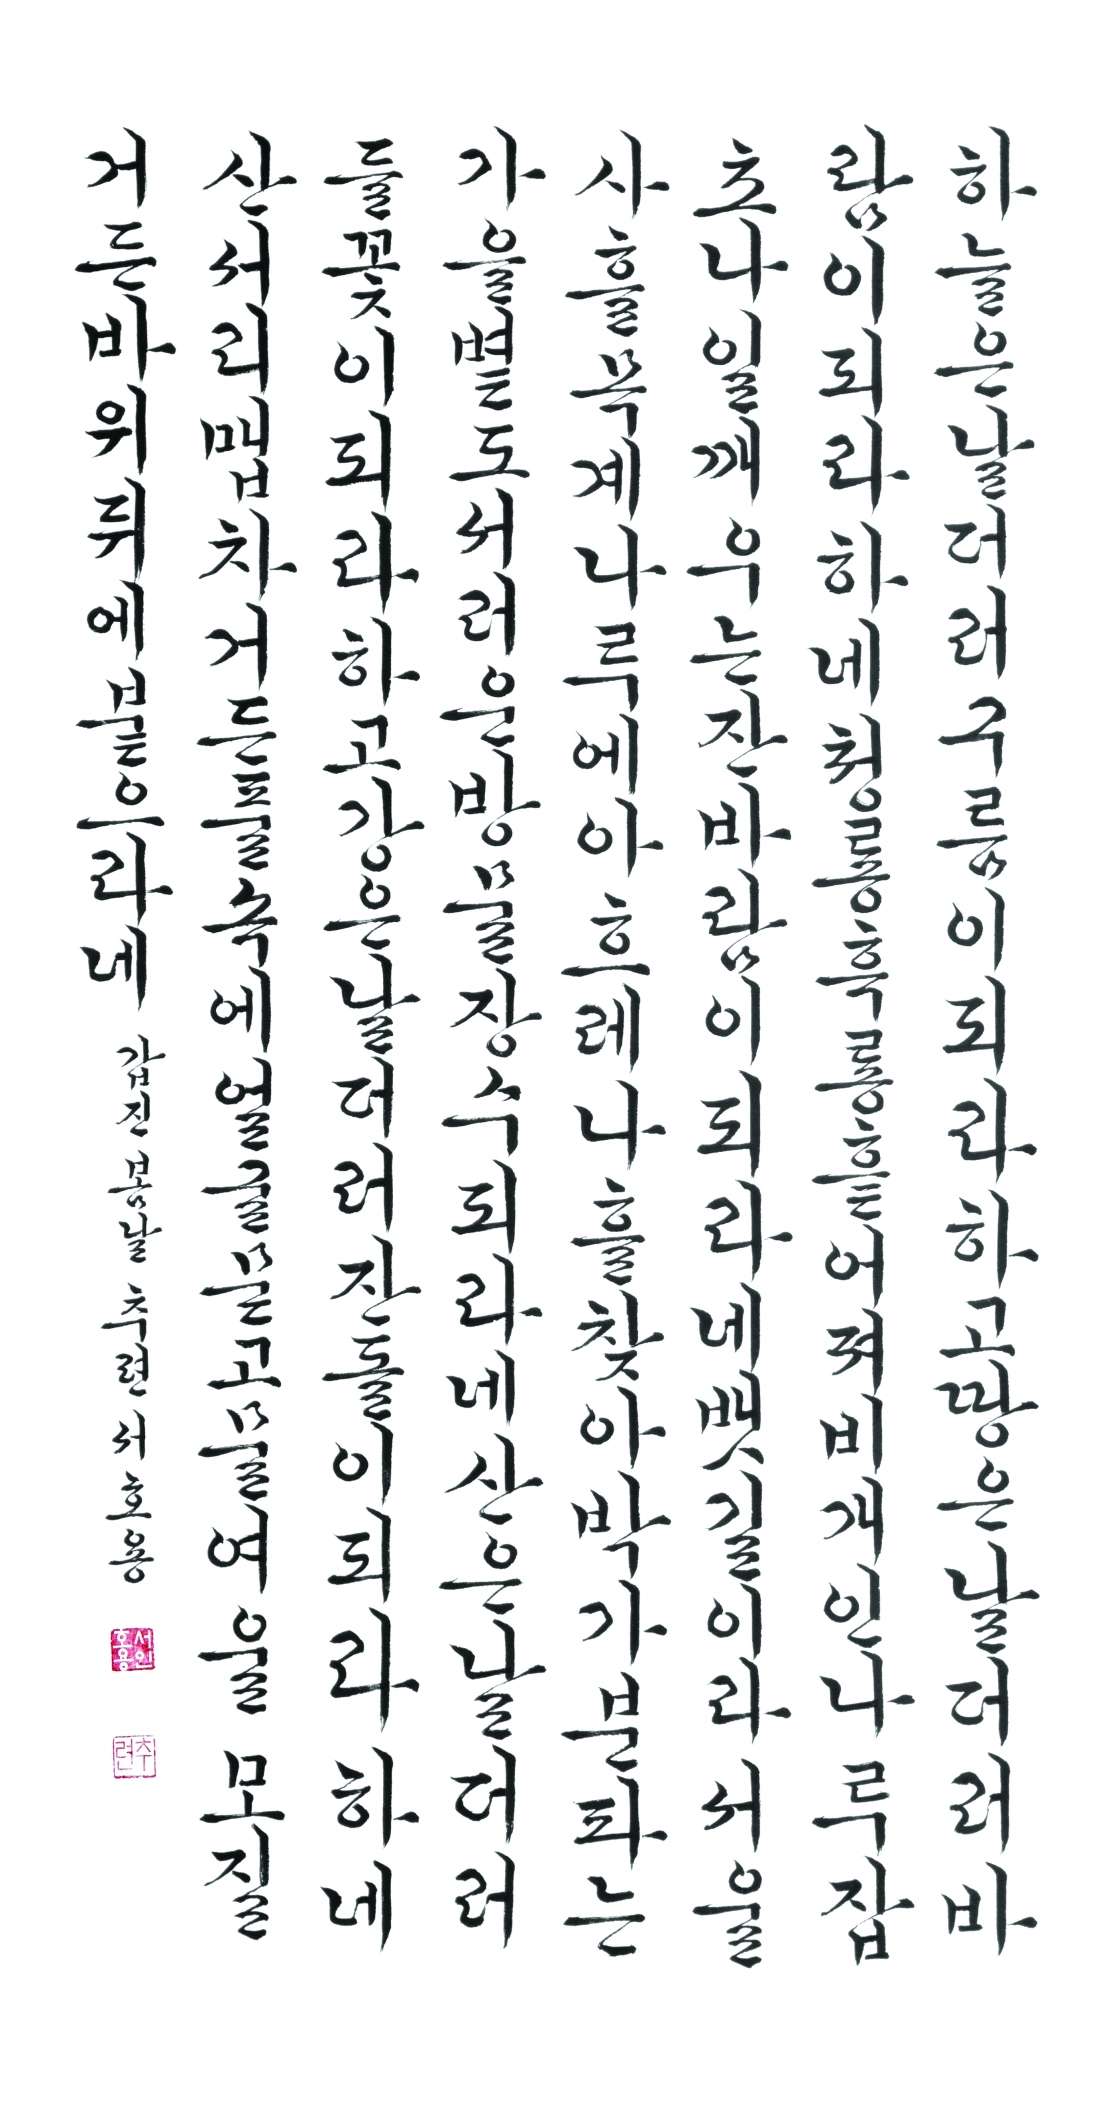 하늘은날더러구름이되라하고땅은날더러바
람이되라하네청룡흑룡흩어져비개인나루잡
초나일깨우는잔바람이되라네뱃길이라서울
사흘목계나루에아흐레나흘찾아박가분파는
가을볕도서러운방물장수되라네산은날더러
들꽃이되라하고강은날더러잔돌이되라하네
산서리맵차거든풀속에얼굴묻고물여울 모질
거든바위뒤에붙으라네 갑진 봄날 추련 서호용
추련